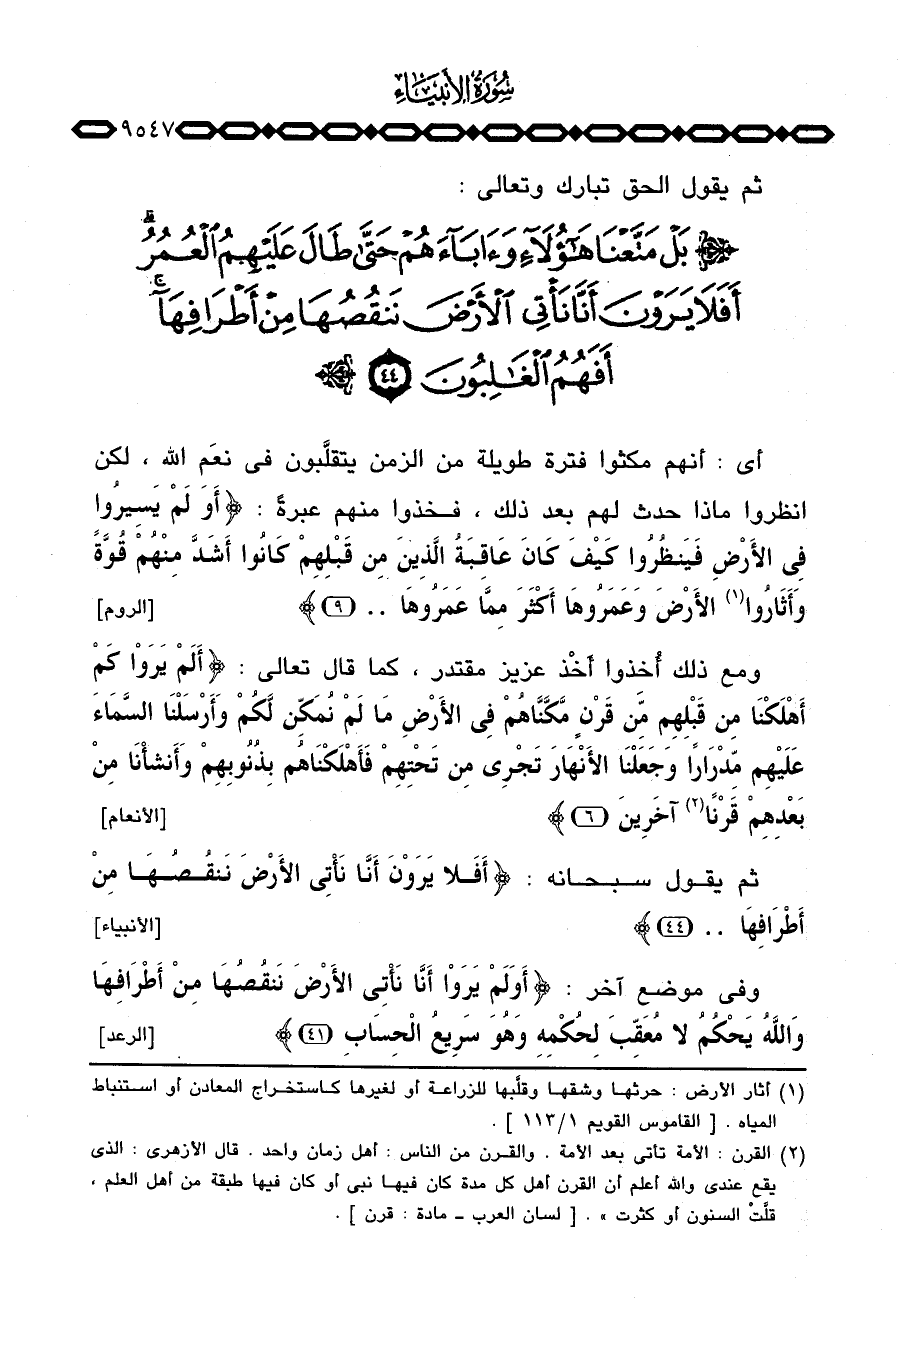 سورة الأنبياء
٩٥٤٧
ثم يقول الحق تبارك وتعالى :
بَلْ مَتَّعْنَا هَٰٓؤُلَآءِ وَءَابَآءَهُمْ حَتَّىٰ طَالَ عَلَيْهِمُ ٱلْعُمُرُ ۗ
أَفَلَا يَرَوْنَ أَنَّا نَأْتِى ٱلْأَرْضَ نَنقُصُهَا مِنْ أَطْرَافِهَآ ۚ
أَفَهُمُ ٱلْغَٰلِبُونَ ﴿٤٤﴾
أى : أنهم مكثوا فترة طويلة من الزمن يتقلَّبون فى نعَم الله ، لكن
انظروا ماذا حدث لهم بعد ذلك ، فخذوا منهم عبرةً : ﴿أَوَ لَمْ يَسيرُوا
فِى الأَرْضِ فَيَنظُرُوا كَيْفَ كَانَ عَاقبَةُ الَّذينَ من قَبْلهِمْ كَانُوا أَشَدَّ منْهُمْ قُوَّةً
وَأَثَارُوا(١) الأَرْضَ وَعَمَرُوهَا أَكْثَرَ ممَّا عَمَرُوهَا .. (٩)﴾ [الروم]
ومع ذلك أُخذوا أَخْذ عزيز مقتدر ، كما قال تعالى : ﴿أَلَمْ يَرَوْا كَمْ
أَهْلَكْنَا من قَبْلهِم مّن قَرْنٍ مَّكَّنَّاهُمْ فِى الأَرْضِ مَا لَمْ نُمَكّن لَّكُمْ وَأَرْسَلْنَا السَّمَاءَ
عَلَيْهِم مّدْرَارًا وَجَعَلْنَا الأَنْهَارَ تَجْرِى من تَحْتهِمْ فَأَهْلَكْنَاهُم بذُنُوبهِمْ وَأَنشَأْنَا منْ
بَعْدهمْ قَرْنًا(٢) آخَرِينَ (٦)﴾ [الأنعام]
ثم يقول سبحانه : ﴿أَفَلا يَرَوْنَ أَنَّا نَأْتِى الأَرْضَ نَنقُصُهَا منْ
أَطْرَافهَا .. (٤٤)﴾ [الأنبياء]
وفى موضع آخر : ﴿أَوَلَمْ يَرَوْا أَنَّا نَأْتِى الأَرْضَ نَنقُصُهَا منْ أَطْرَافهَا
وَاللَّهُ يَحْكُمُ لا مُعَقّبَ لحُكْمه وَهُوَ سَرِيعُ الْحسَابِ (٤١)﴾ [الرعد]
(١) أثار الأرض : حرثها وشقها وقلَّبها للزراعة أو لغيرها كاستخراج المعادن أو استنباط
المياه . [ القاموس القويم ١١٣/١ ] .
(٢) القرن : الأمة تأتى بعد الأمة . والقرن من الناس : أهل زمان واحد . قال الأزهرى : الذى
يقع عندى والله أعلم أن القرن أهل كل مدة كان فيها نبى أو كان فيها طبقة من أهل العلم ،
قلَّتْ السنون أو كثرت » . [ لسان العرب – مادة : قرن ] .